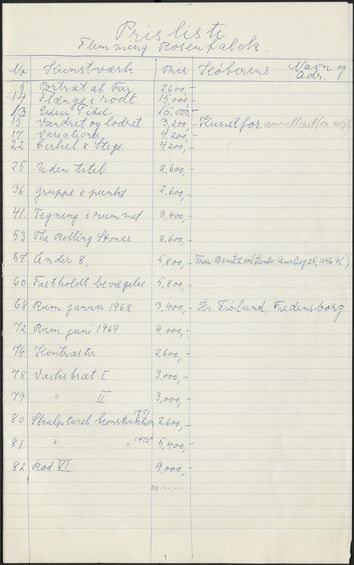 Prisliste
Flemming Rosenfalck.
No Kunstværk Pris Køberens Navn og Adr.
9 Portræt af Far 2600,-
14 Flænge i rødt 15,000,-
13 Uden Titel 15,000,-
15 Vandret og lodret 3,200,- Kunstfor.
17 Variationer 4,200,-
22 Cirkel & Stige. 4,200,-
25 Uden titel 2,600,-
36 Gruppe & punkt 2,600,-
41. Tegning i rummet 3,400,-
53 The Rolling Stones 2,600,-
57 Ander 8. 5,800,- Fru Bentzon
60 Fastholdt bevægelse 5,800,-
68 Rum januar 1968 3,400,- Hr. Frölund, Fredensborg
72 Rum, juni 1969 4,000,-
74 Kontraster 2,600,-
78 Vaskebræt I 3,000,-
79 " II 3,000,-
80 Skulpturel konstruktion 1971 2,600,-
81 " " 1972 5,400,-
82 Rod VI 9,000,-
1